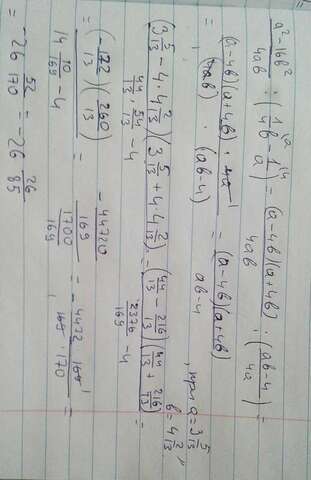 a²-16b²/4ab : (1/4b - 1/a) = (a-4b)(a+4b)/4ab : (ab-4/4a) =
= (a-4b)(a+4b)·4a/(4ab)·(ab-4) = (a-4b)(a+4b)/ab-4, при a=3 5/13
b=4 2/13
(3 5/13 - 4·4 2/13)(3 5/13 + 4·4 2/13)/44/13 · 54/13 - 4 = (44/13 - 216/13)(44/13 + 216/13)/2376/169 - 4 =
= (-172/13)(260/13)/14 10/169 - 4 = -44720/169/1700/169 = -4472·169/169·170 =
= -26 52/170 = -26 26/85